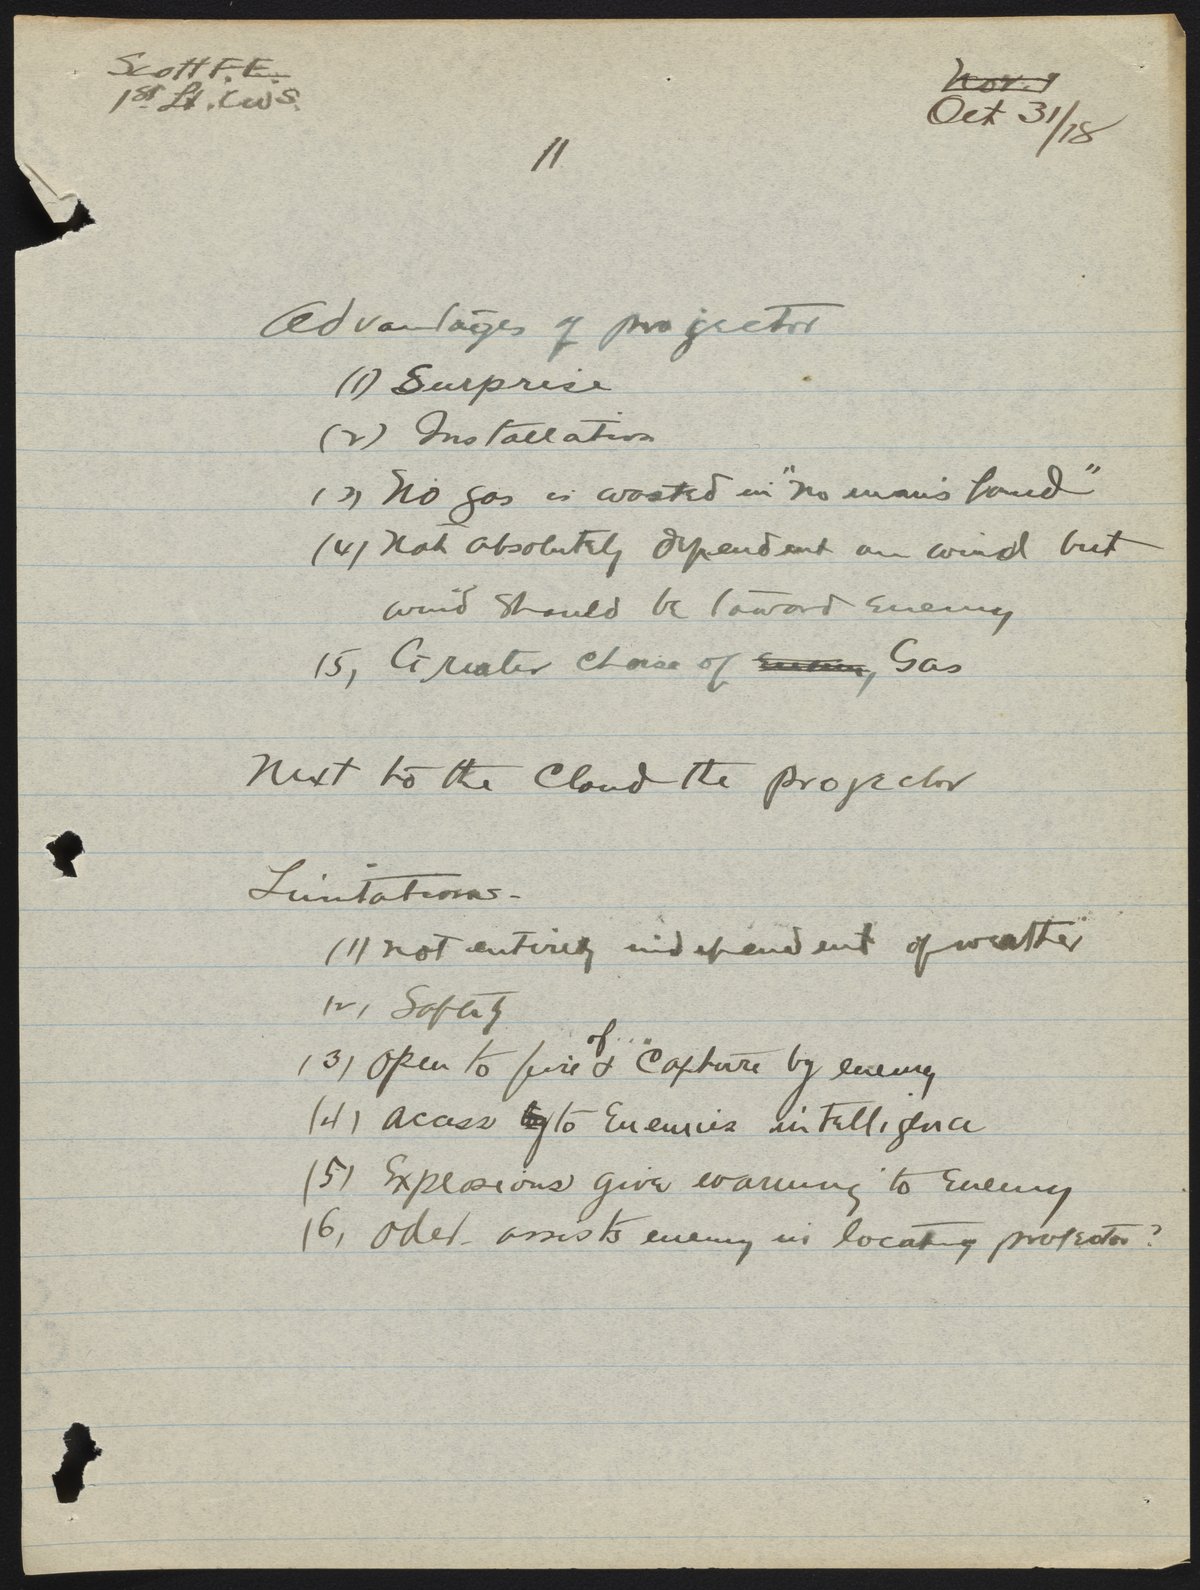 Scott F. E.
1st Lt. C.W.S.
Nov. 1
Oct 31/18
11
Advantages of projector
(1) Surprise
(2) Installation
(3) No gas is wasted in "no man's land"
(4) Not absolutely dependent on wind but
wind should be toward enemy
(5) Greater choise of Gas
Next to the Cloud the projector
Limitations -
(1) not entirely independent of weather
(2) Safety
(3) Open to fire of & Capture by enemy
(4) acass by to Enemies intelligence
(5) Explosions give warning to Enemy
(6) Oder assists enemy in locating projector?